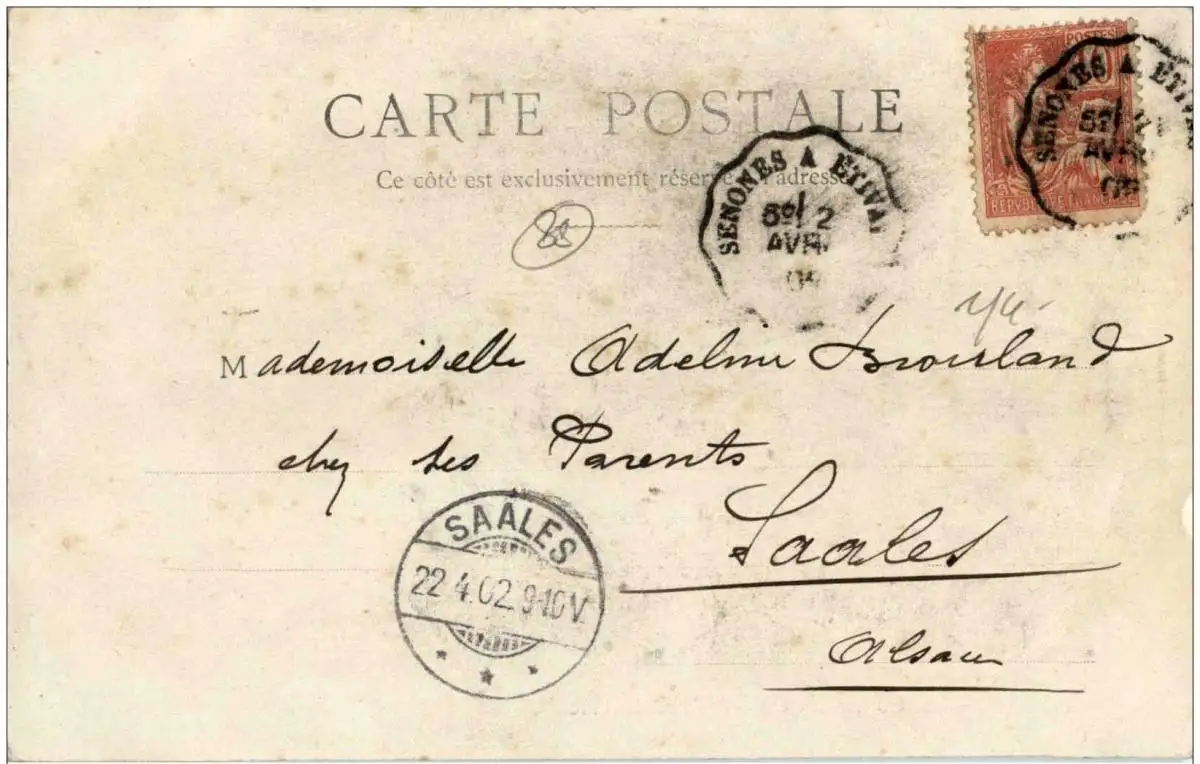 POSTES
10
REPVBLIQVE FRANCAISE
SENONES A ETIVAL
AVR.
CARTE POSTALE
Ce côté est exclusivement réservé à l'adresse
SENONES A ETIVAL
2
AVR.
Mademoiselle Adeline
chez ses Parents
Saales
Alsace
SAALES
22.4.02.9-10V.